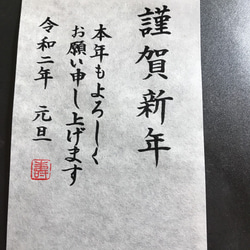 謹賀新年
本年もよろしく
お願い申し上げます
令和二年 元旦
壽